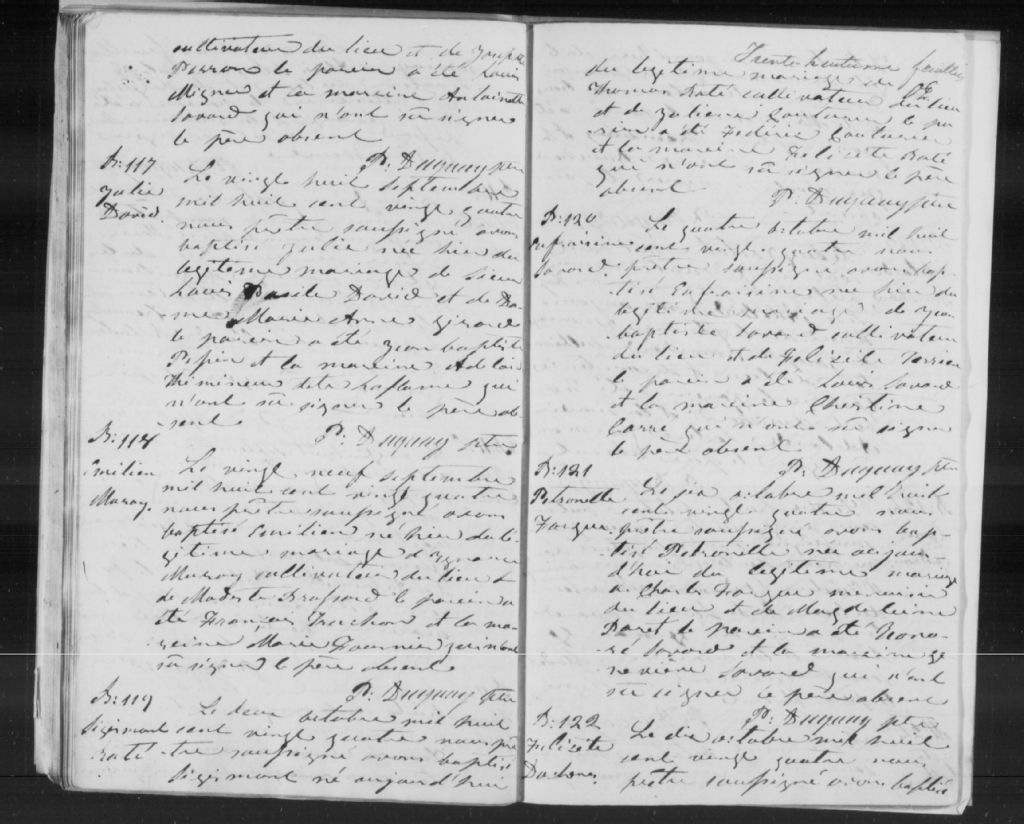 cultivateur du lieu et de Josephe
Perron le parein a été Louis
Migner et la mareine Antoinette
Savard qui n'ont su signer
le père absent
P: Duguay ptre
B: 117
Julie
David.
Le vingt huit septembre
mil huit cent vingt quatre
nous prêtre soussigné avons
baptisé Julie née hier du
legitime mariage de Sieur
Louis Basile David et de Da-
me Marie Anne Girard
le parein a été Jean baptiste
Pepin et la mareine Adelai
de Laflame qui
n'ont su signer le père ab
sent
P: Duguay ptre
B: 118
Emilien
Muray.
Le vingt neuf septembre
mil huit cent vingt quatre
nous prêtre soussigné avons
baptisé Emilien né hier du le
gitime mariage d'Ignace
Muray cultivateur du lieu &
de Modeste Brassard le parein a
été François Truchon et la ma
reine Marie Fournier qui n'ont
su signer le père absent
P: Duguay ptre
B: 119
Sigismont
Raté
Le deux octobre mil huit
cent vingt quatre nous prê
tre soussigné avons baptisé
Sigismont né aujourd'hui
Trente huitieme feuillet
du legitime mariage de
Thomas Raté cultivateur du lieu
et de Julienne Couturier le pa
rein a été Federic Couturier
et la mareine Felicité Raté
qui n'ont su signer le père
absent
P: Duguay ptre
B: 120
Eufraisine
Savard
Le quatre octobre mil huit
cent vingt quatre nous
prêtre soussigné avons bap-
tisé Eufraisine née hier du
legitime mariage de Jean
baptiste Savard cultivateur
du lieu et de Felicité
le parein a été Louis Savard
et la mareine Christine
Carré qui n'ont su signer
le père absent
P: Duguay ptre
B: 121
Petronelle
Forgue
Le six octobre mil huit
cent vingt quatre nous
prêtre soussigné avons bap-
tisé Petronelle née aujour
d'hui du legitime mariage
de Charles Forgue menuisier
du lieu et de Magdeleine
Paret le parein a été Hono-
ré Savard et la mareine Ge
nevieve Savard qui n'ont
su signer le père absent
P: Duguay ptre
B: 122
Felicité
Le dix octobre mil huit
cent vingt quatre nous
prêtre soussigné avons baptisé